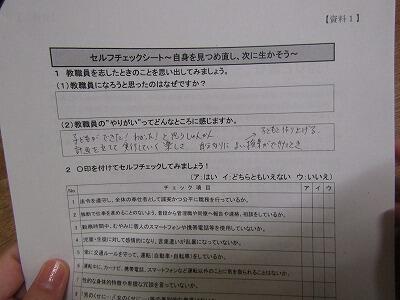 【資料1】
セルフチェックシート～自身を見つめ直し、次に生かそう～
1 教職員を志したときのことを思い出してみましょう。
(1)教職員になろうと思ったのはなぜですか？
(2)教職員の"やりがい"ってどんなところに感じますか。
子どもが できた！ わかった！ と思うしゅんかん → 子どもと作り上げる。
計画を立てて 実行していく 楽しさ 自分なりに よい授業ができたとき
2 〇印を付けてセルフチェックしてみましょう！
(ア：はい イ：どちらともいえない ウ：いいえ)
No チェック項目 ア イ ウ
1 法令を遵守し、全体の奉仕者として誠実かつ公平に職務を行っているか。
2 独断で仕事を進めることのないよう、普段から管理職や同僚へ報告や連絡、相談をしているか。
3 勤務時間中、むやみに個人のスマートフォンや携帯電話等を使用していないか。
4 児童・生徒に対して感情的になり、言葉遣いが乱暴になっていないか。
5 常に交通ルールを守って、運転(自動車・自転車)をしているか。
6 運転中に、カーナビ、携帯電話、スマートフォンなど運転以外のことに気を取られることはないか。
7 性的な身体的特徴や卑猥な冗談を言っていないか。